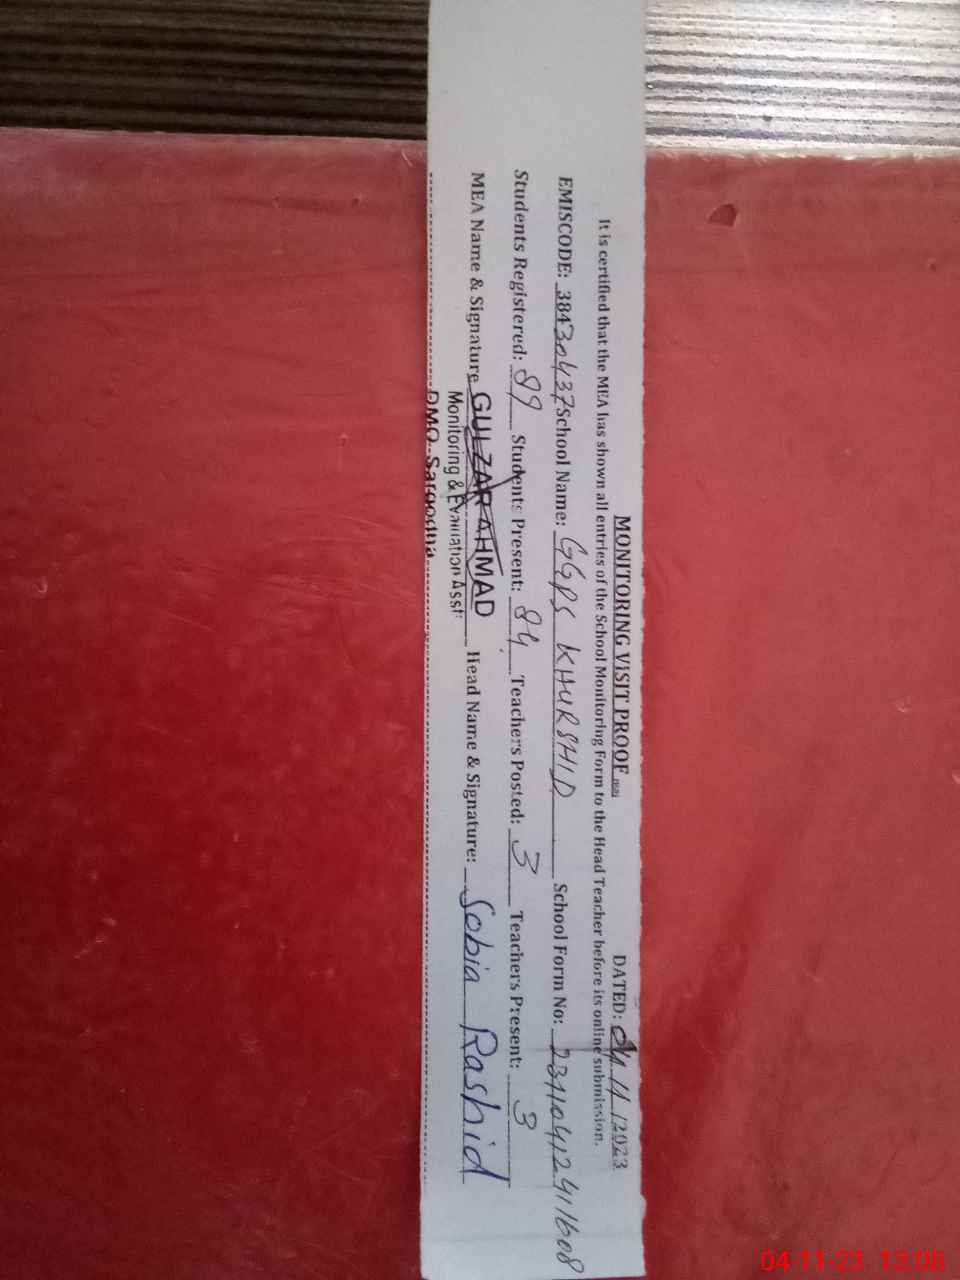 MONITORING VISIT PROOF DATED: 04/11/2023
It is certified that the MEA has shown all entries of the School Monitoring Form to the Head Teacher before its online submission.
EMISCODE: 38430437 School Name: GGPS KHURSHID School Form No:
Students Registered: 89 Students Present: 84 Teachers Posted: 3 Teachers Present: 3
MEA Name & Signature GULZAR AHMAD Head Name & Signature: Sobia Rashid
Monitoring & Evaluation Asst:
DMO Sargodha
04-11-23 13:08